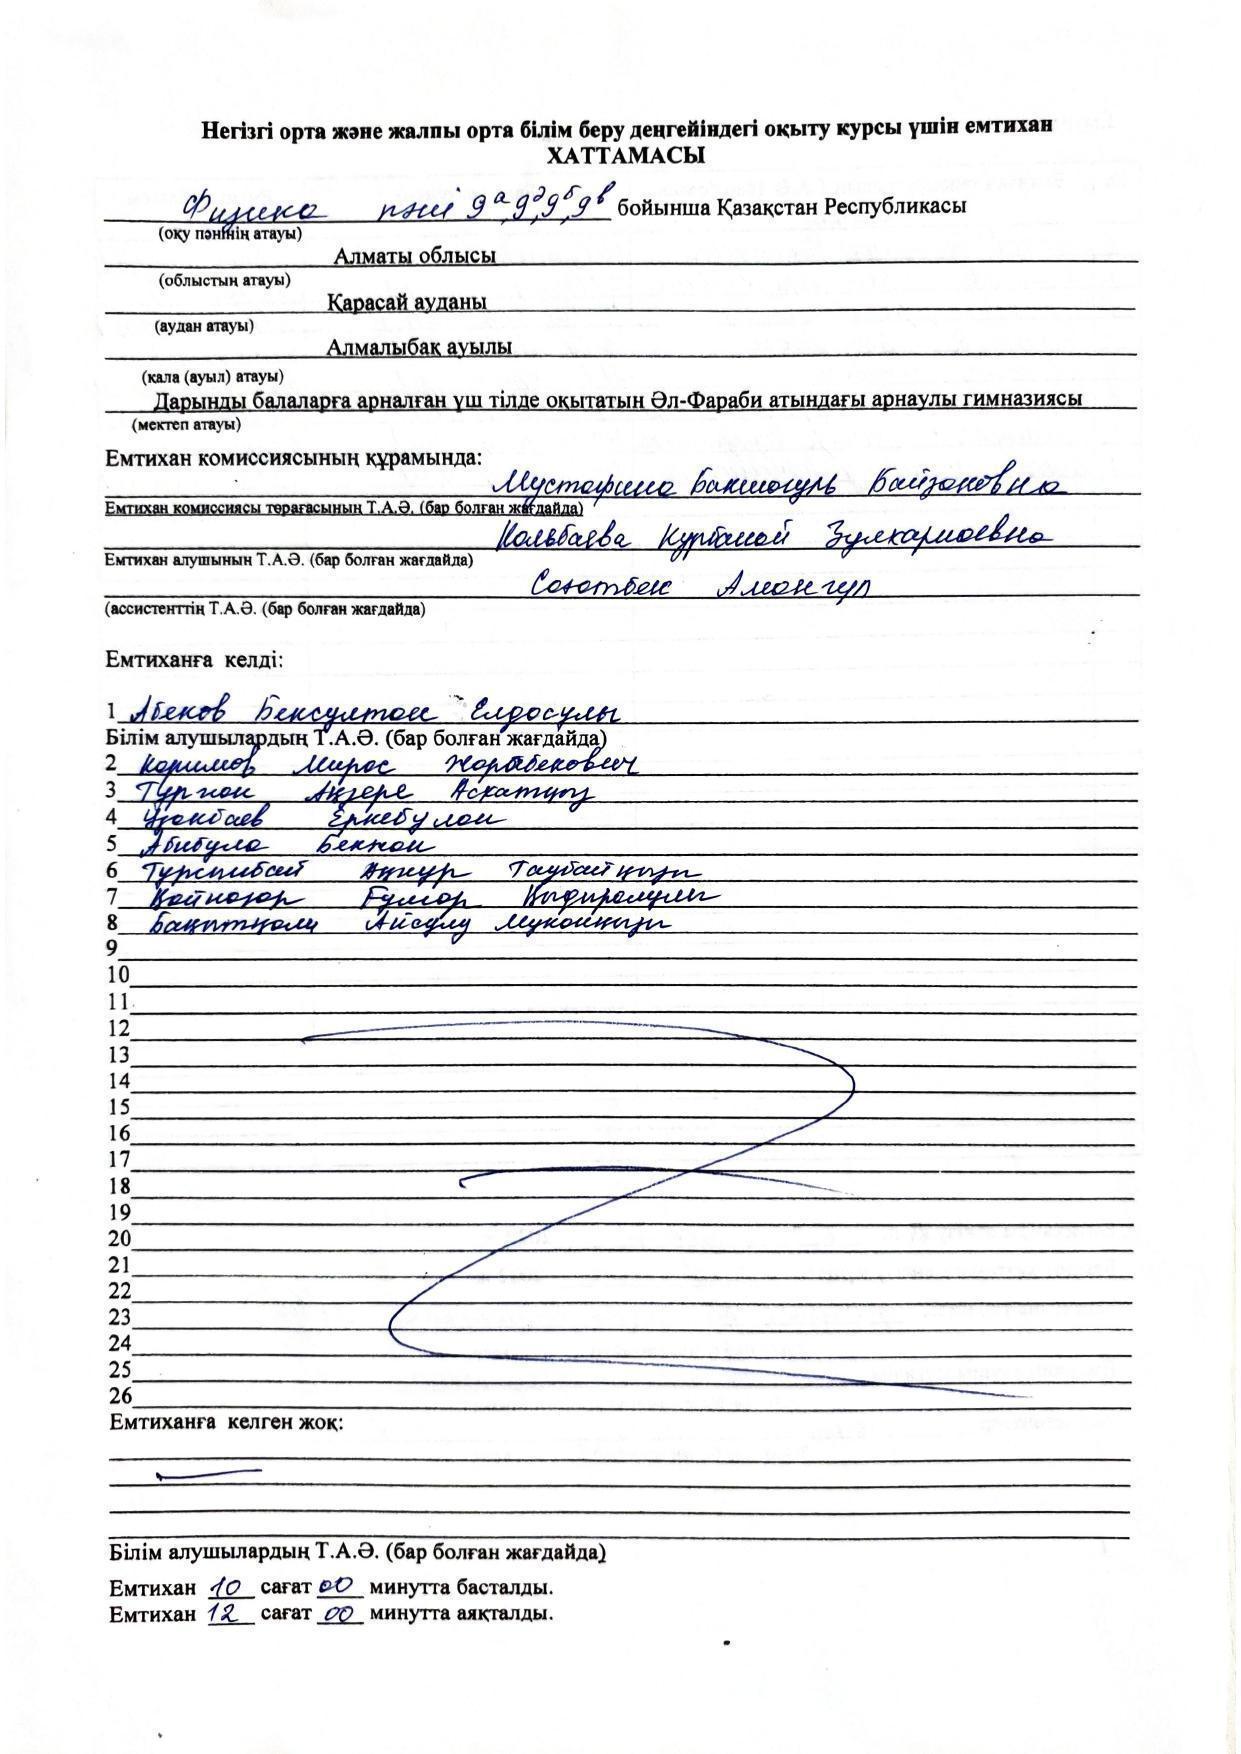 Негізгі орта және жалпы орта білім беру деңгейіндегі оқыту курсы үшін емтихан
ХАТТАМАСЫ
Физика пәні 9а,9д,9б,9в бойынша Қазақстан Республикасы
(оқу пәнінің атауы)
Алматы облысы
(облыстың атауы)
Қарасай ауданы
(аудан атауы)
Алмалыбақ ауылы
(қала (ауыл) атауы)
Дарынды балаларға арналған үш тілде оқытатын Әл-Фараби атындағы арнаулы гимназиясы
(мектеп атауы)
Емтихан комиссиясының құрамында:
Мустафина Бакшагуль Байзаковна
Емтихан комиссиясы төрағасының Т.А.Ә. (бар болған жағдайда)
Кольбаева Курбаной Зулкарноевна
Емтихан алушының Т.А.Ә. (бар болған жағдайда)
Саботбек Амангул
(ассистенттің Т.А.Ә. (бар болған жағдайда)
Емтиханға келді:
1 Абеков Бексултан Елдосулы
Білім алушылардың Т.А.Ә. (бар болған жағдайда)
2 Каримов Мирас Жорабекович
3 Турган Ақзере Асқатқызы
4 Ұзақбаев Еркебулан
5 Абибула Бекжан
6 Турсынбай Ақнұр Таубайқызы
7 Қайназар Ғулмар Қыдыралулы
8 Бақытқали Айсұлу Мұқанқызы
9
10
11
12
13
14
15
16
17
18
19
20
21
22
23
24
25
26
Емтиханға келген жоқ:
Білім алушылардың Т.А.Ә. (бар болған жағдайда)
Емтихан 10 сағат 00 минутта басталды.
Емтихан 12 сағат 00 минутта аяқталды.